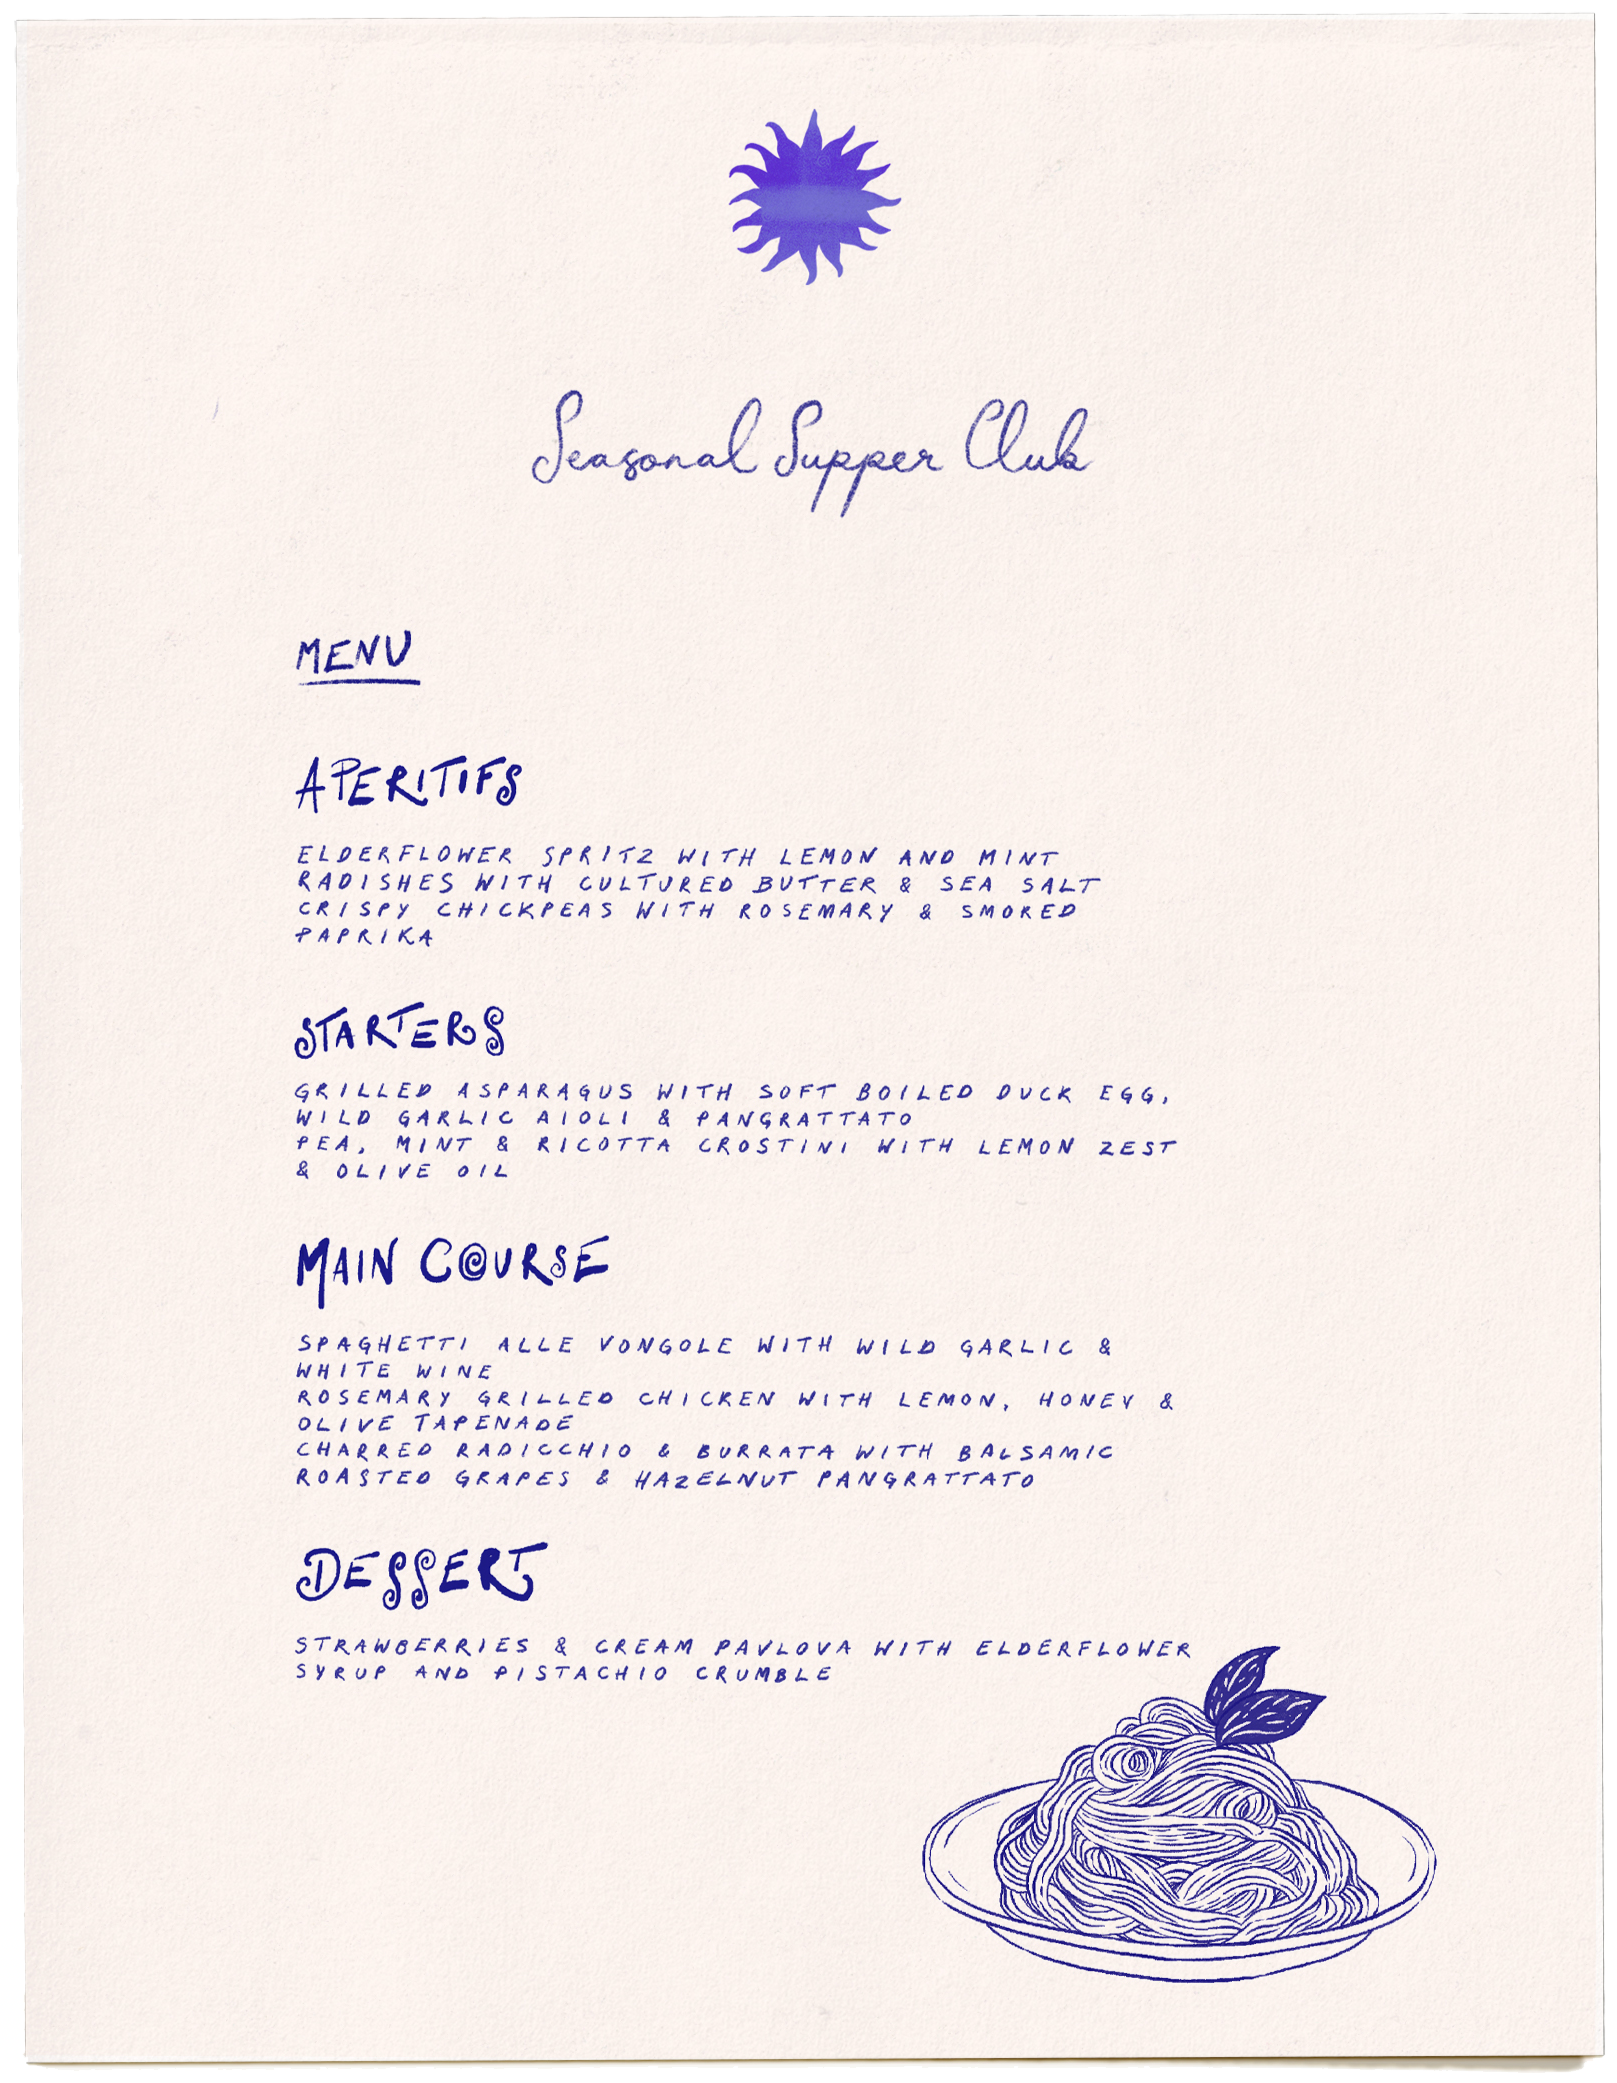 Seasonal Supper Club
MENU
APERITIFS
ELDERFLOWER SPRITZ WITH LEMON AND MINT
RADISHES WITH CULTURED BUTTER & SEA SALT
CRISPY CHICKPEAS WITH ROSEMARY & SMOKED
PAPRIKA
STARTERS
GRILLED ASPARAGUS WITH SOFT BOILED DUCK EGG,
WILD GARLIC AIOLI & PANGRATTATO
PEA, MINT & RICOTTA CROSTINI WITH LEMON ZEST
& OLIVE OIL
MAIN COURSE
SPAGHETTI ALLE VONGOLE WITH WILD GARLIC &
WHITE WINE
ROSEMARY GRILLED CHICKEN WITH LEMON, HONEY &
OLIVE TAPENADE
CHARRED RADICCHIO & BURRATA WITH BALSAMIC
ROASTED GRAPES & HAZELNUT PANGRATTATO
DESSERT
STRAWBERRIES & CREAM PAVLOVA WITH ELDERFLOWER
SYRUP AND PISTACHIO CRUMBLE